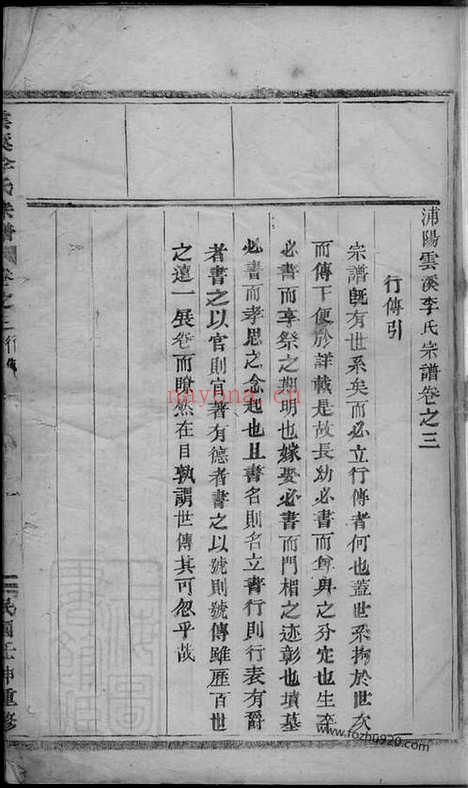 浦陽雲溪李氏宗譜卷之三
行傳引
宗譜旣有世系矣而必立行傳者何也蓋世系拘於世次
而傳下便於詳載是故長幼必書而尊與之分定也生卒
必書而享祭之期明也嫁娶必書而門楣之迹彰也墳墓
必書而孝思之念起也且書名則名立書行則行表有爵
者書之以官則官著有德者書之以號則號傳雖歷百世
之遠一展卷而瞭然在目孰謂世傳其可忽乎哉
雲溪李氏宗譜 卷之三行傳
一 民國壬申重修
nnyona.cn
www.fozhu920.com